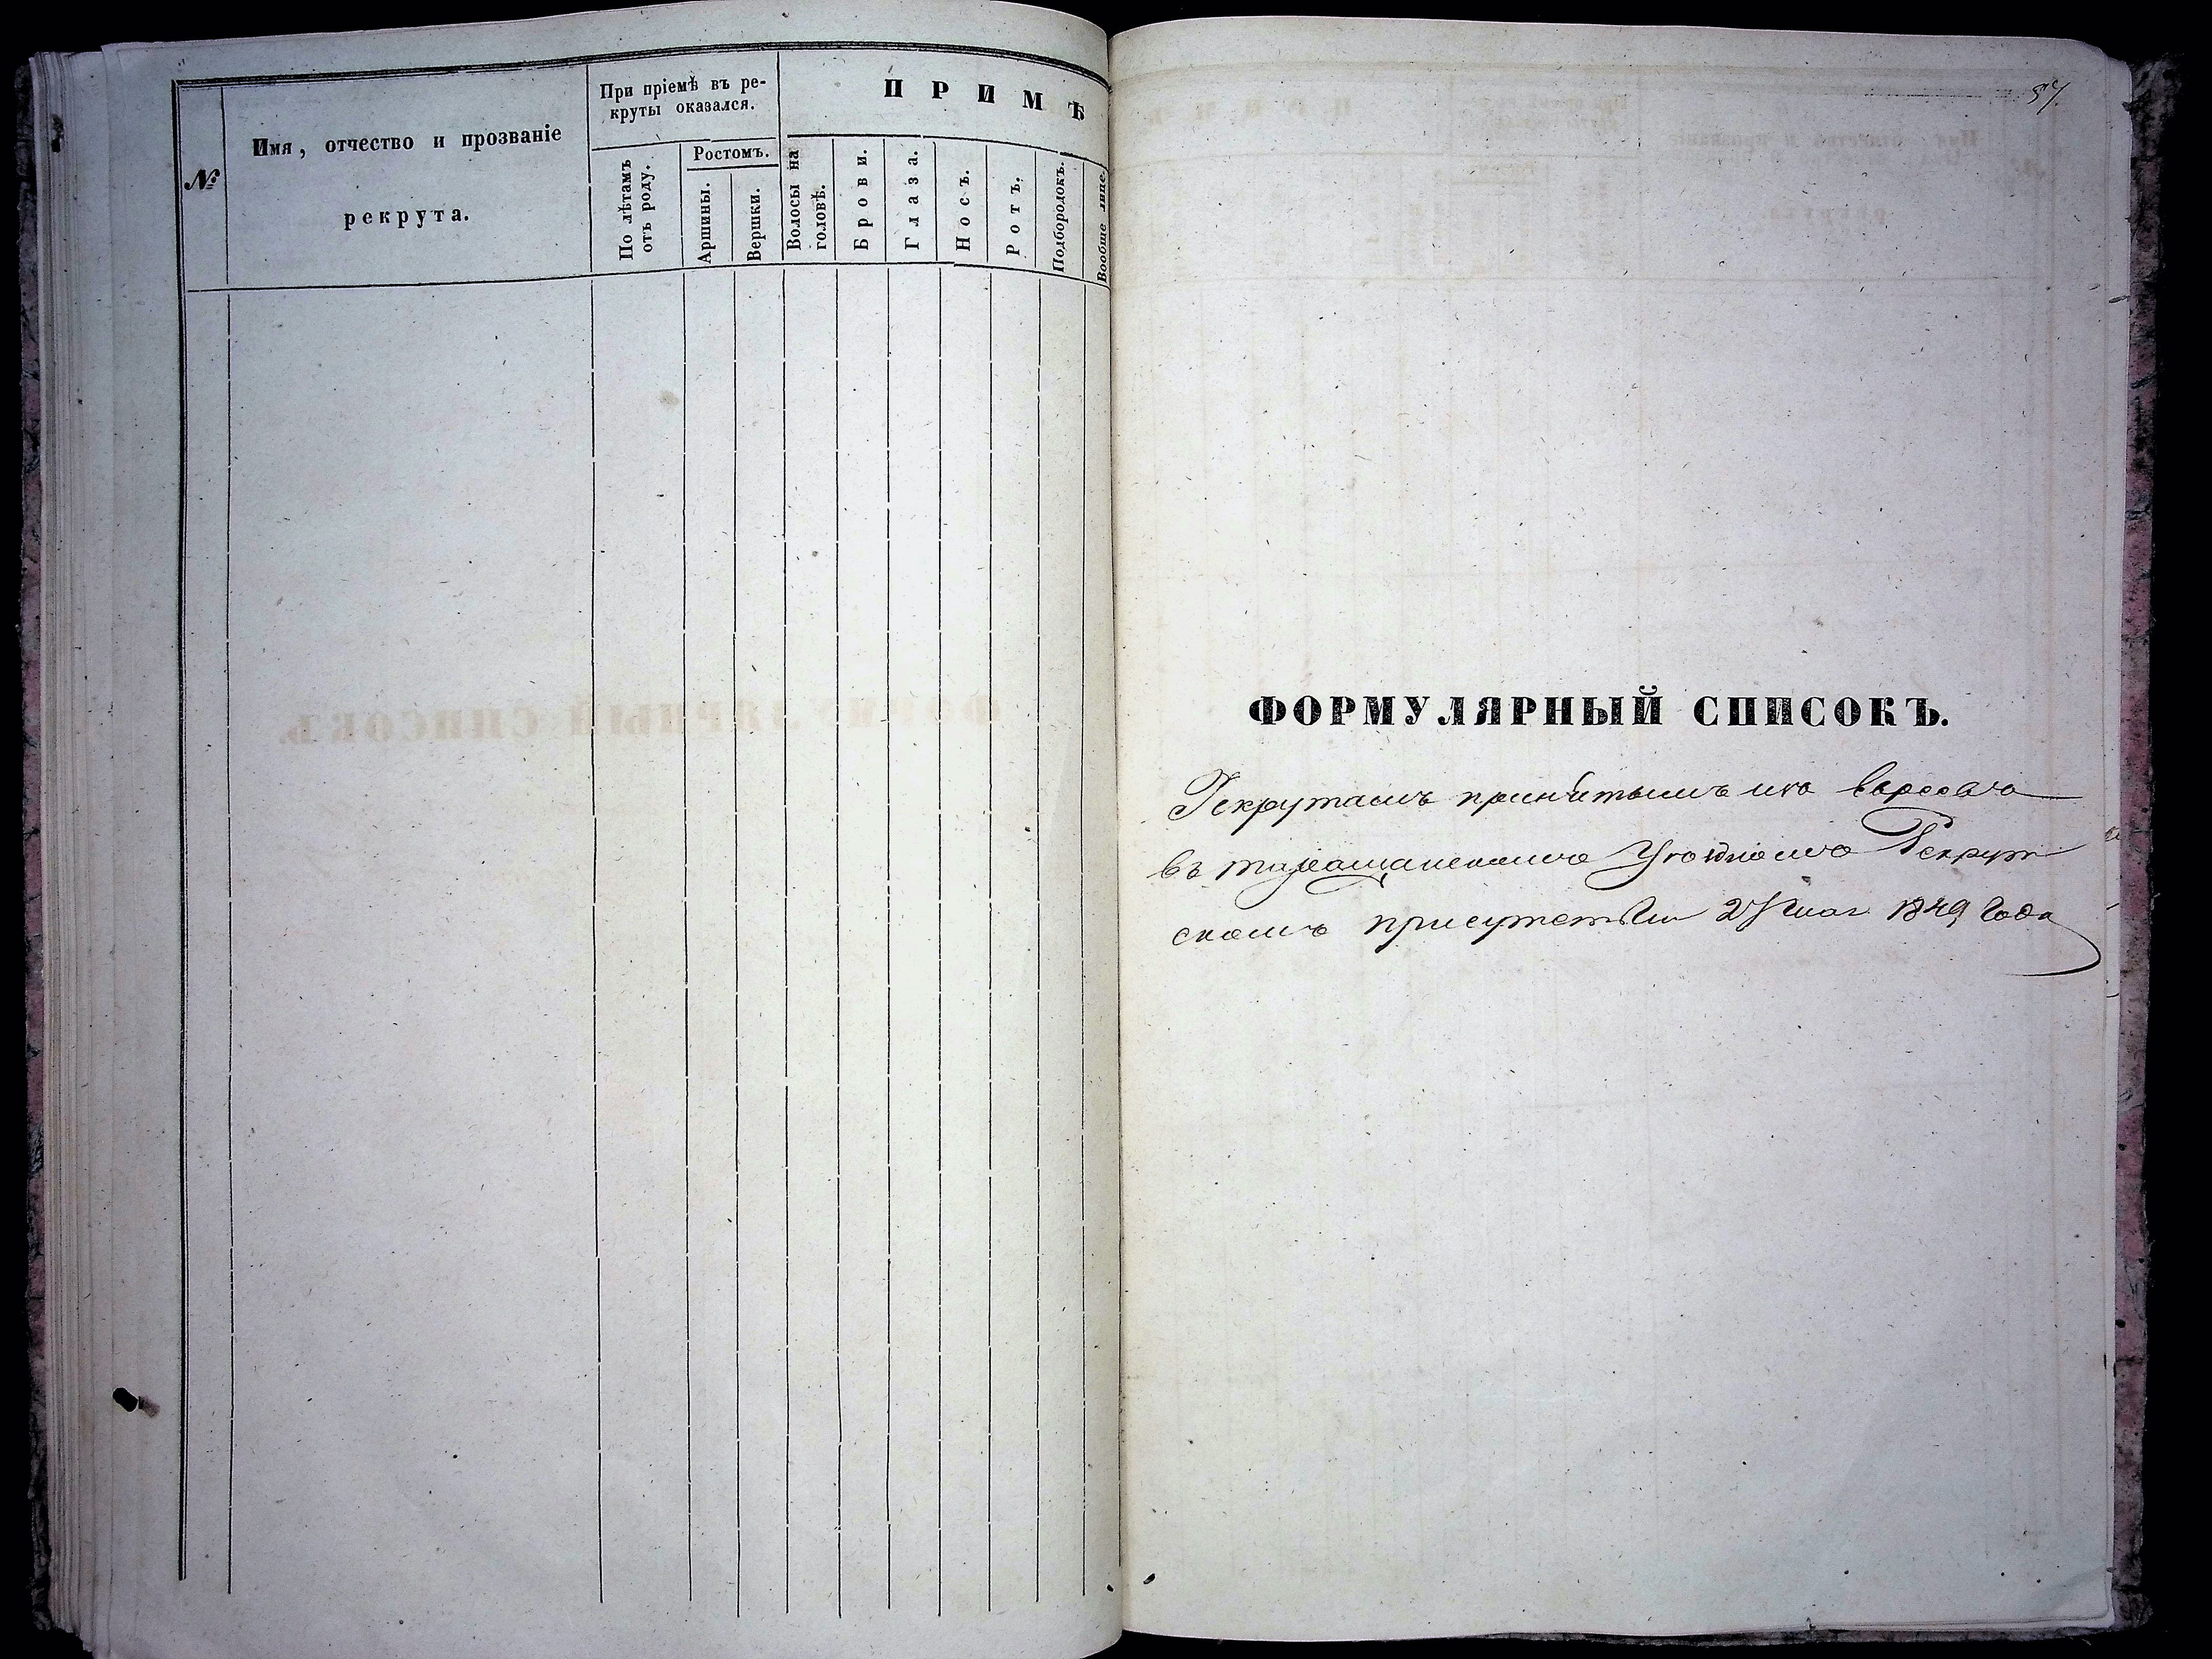 №
Имя, отчество и прозваніе
рекрута.
При пріемѣ въ ре-
круты оказался.
По лѣтамъ
отъ роду.
Ростомъ.
Аршины.
Вершки.
ПРИМѢ
Волосы на
головѣ.
Брови.
Глаза.
Носъ.
Ротъ.
Подбородокъ.
Вообще лице.
57.
ФОРМУЛЯРНЫЙ СПИСОКЪ.
Рекрутамъ принятымъ изъ Евреовъ
въ таращанскомъ Уѣздномъ Рекрут
скомъ присутствіи 1849 Года